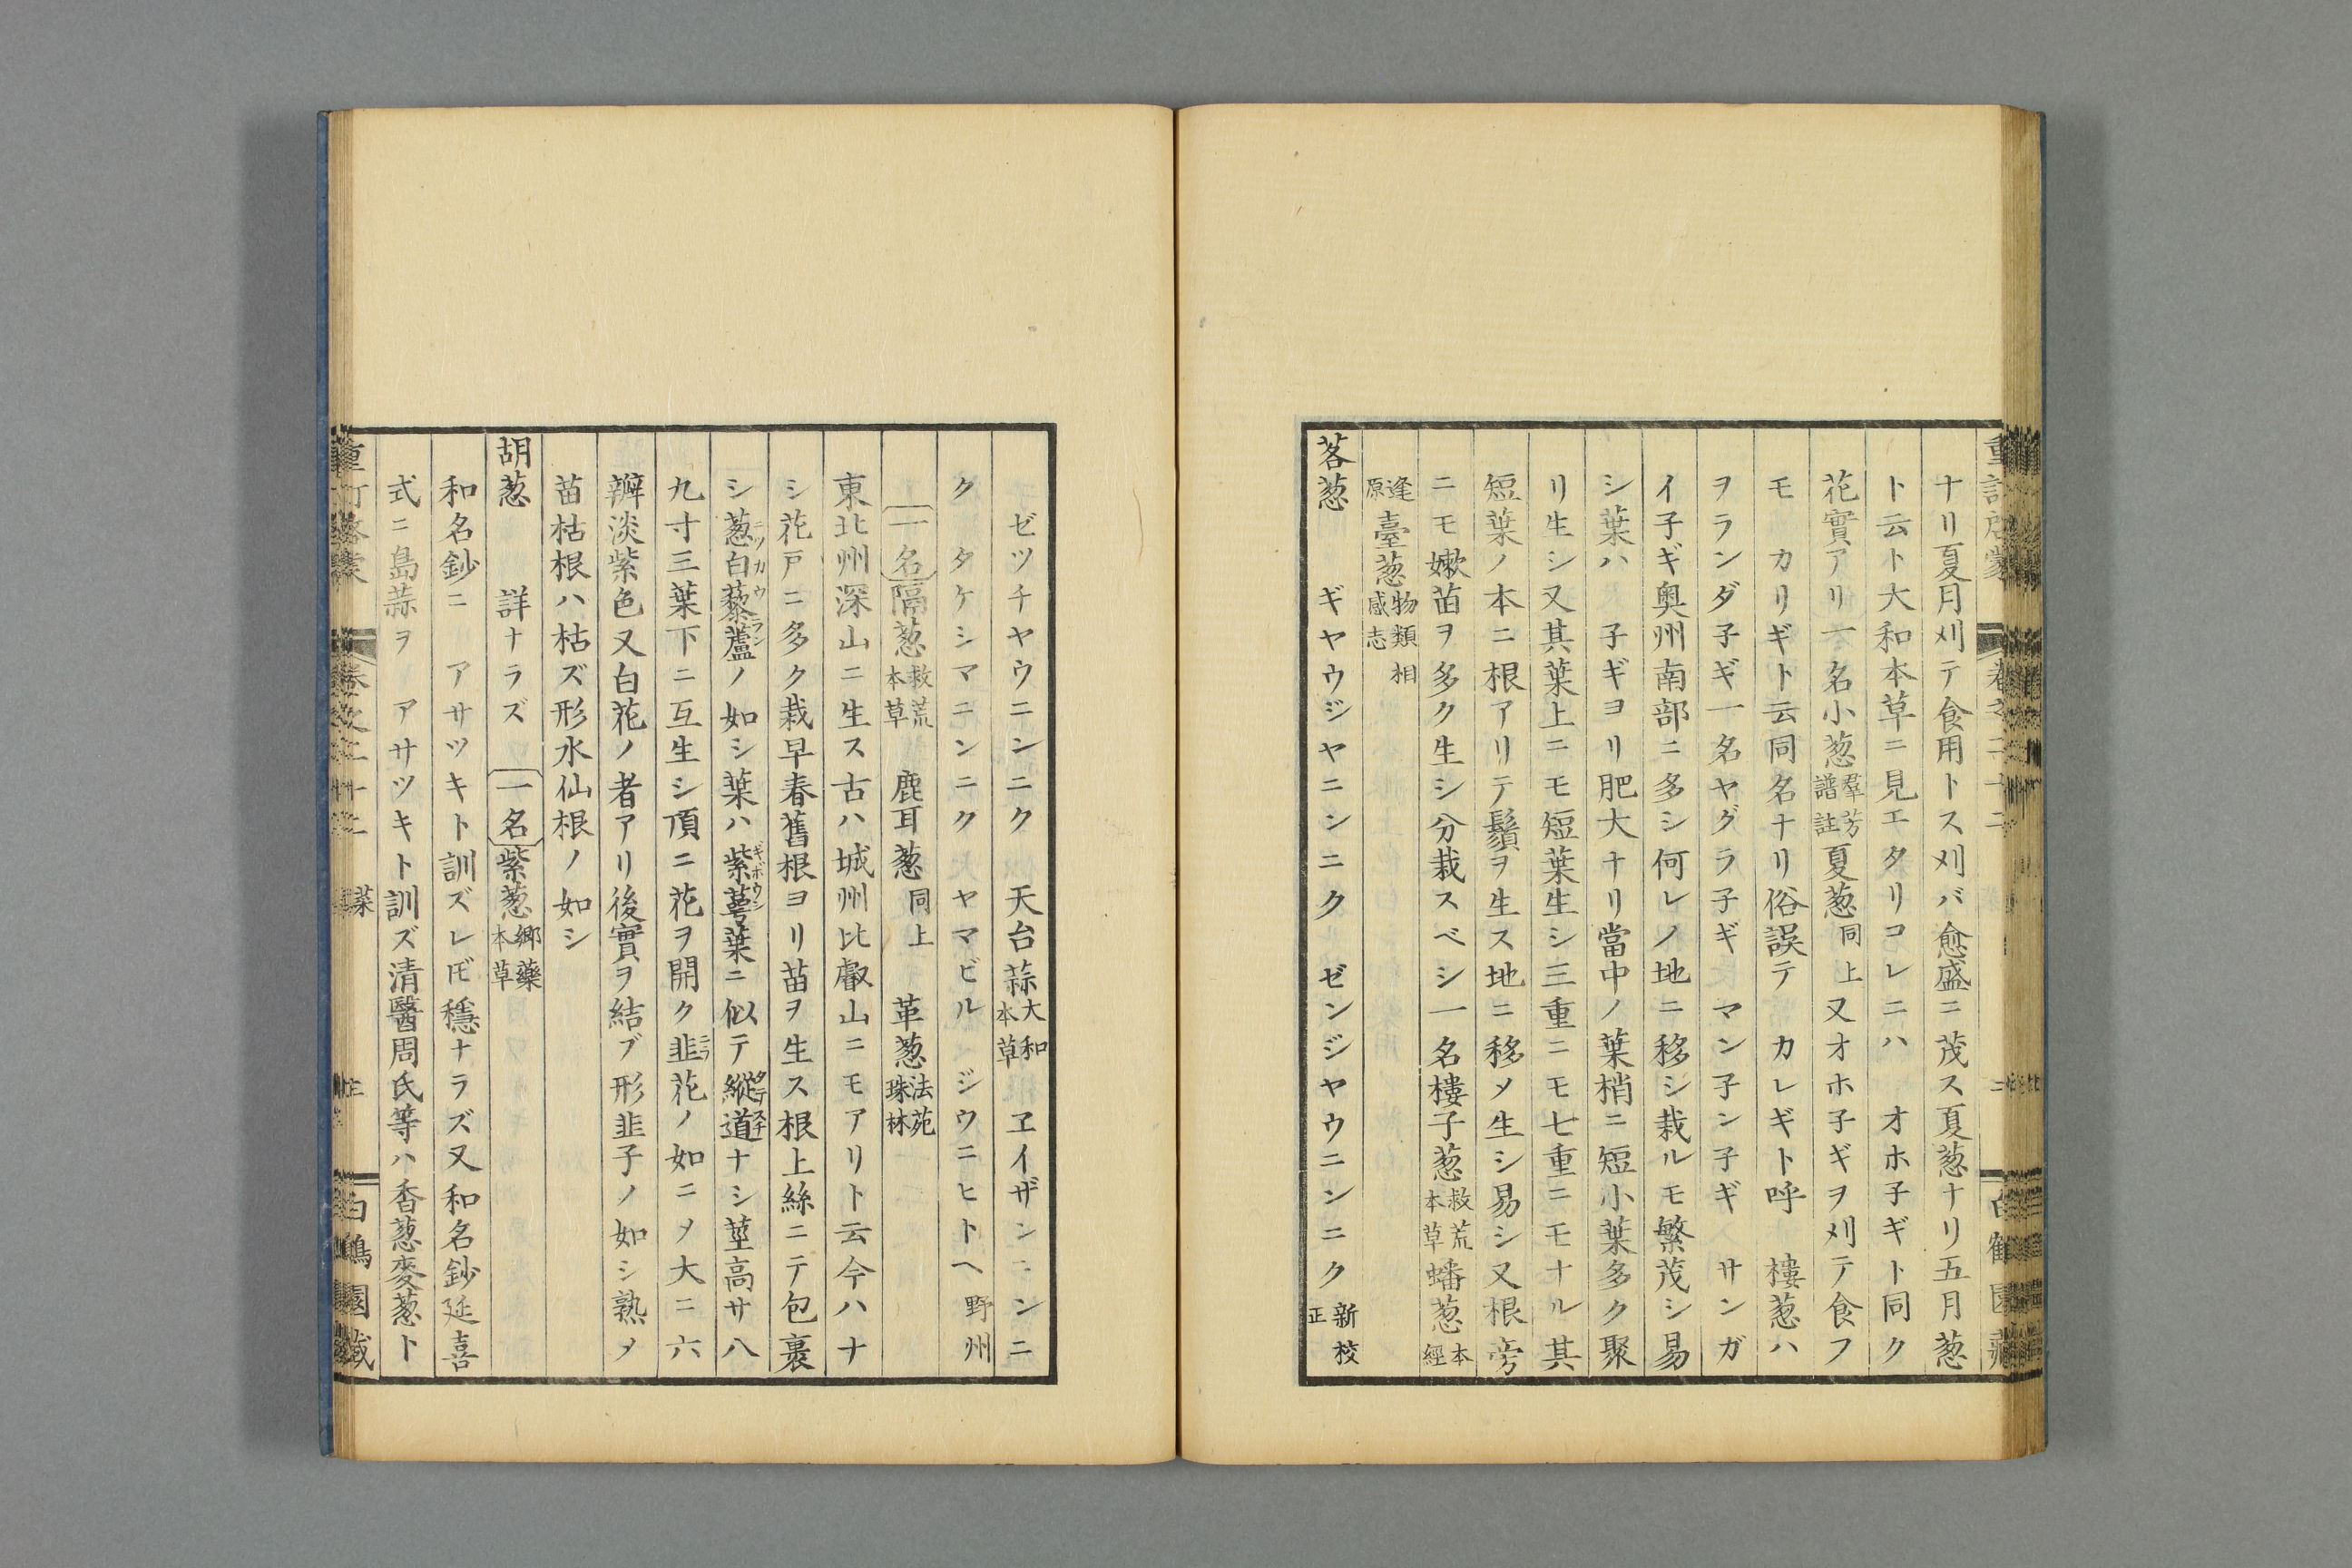 ナリ夏月刈テ食用トス刈バ愈盛ニ茂ス夏葱ナリ五月葱
ト云ト大和本草ニ見エタリコレニハ オホ子ギト同ク
花實アリ一名小葱羣芳譜註夏葱同上又オホ子ギヲ刈テ食フ
モ カリギト云同名ナリ俗誤テ カレギト呼 樓葱ハ
ヲランダ子ギ一名ヤグラ子ギ マン子ン子ギ サンガ
イ子ギ奥州南部ニ多シ何レノ地ニ移シ栽ルモ繁茂シ易
シ葉ハ 子ギヨリ肥大ナリ當中ノ葉梢ニ短小葉多ク聚
リ生シ又其葉上ニモ短葉生シ三重ニモ七重ニモナル其
短葉ノ本ニ根アリテ鬚ヲ生ス地ニ移メ生シ易シ又根旁
ニモ嫰苗ヲ多ク生シ分栽スベシ一名樓子葱救荒本草蟠葱本經
逢原臺葱物類相感志
茖葱 ギヤウジヤニンニク ゼンジヤウニンニク新校正
ゼツチヤウニンニク 天台蒜大和本草 ヱイザンニンニ
ク タケシマニンニク ヤマビル ジウニヒトヘ野州
一名隔葱救荒本草 鹿耳葱同上 革葱法苑珠林
東北州深山ニ生ス古ハ城州比叡山ニモアリト云今ハナ
シ花戸ニ多ク栽早春舊根ヨリ苗ヲ生ス根上絲ニテ包裹
シ葱白藜蘆ノ如シ葉ハ紫萼葉ニ似テ縦道ナシ莖高サ八
九寸三葉下ニ互生シ頂ニ花ヲ開ク韭花ノ如ニメ大ニ六
瓣淡紫色又白花ノ者アリ後實ヲ結ブ形韭子ノ如シ熟メ
苗枯根ハ枯ズ形水仙根ノ如シ
胡葱 詳ナラズ 一名紫葱郷藥本草
和名鈔ニ アサツキト訓ズレ𪜈穩ナラズ又和名鈔延喜
式ニ島蒜ヲ アサツキト訓ズ清醫周氏等ハ香葱麥葱ト